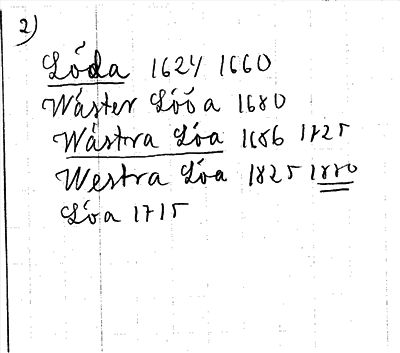 2)
Lóda 1624 1660
Wáster Lóóa 1680
Wástra Lóa 1686 1725
Westra Lóa 1825 1880
Lóa 1715